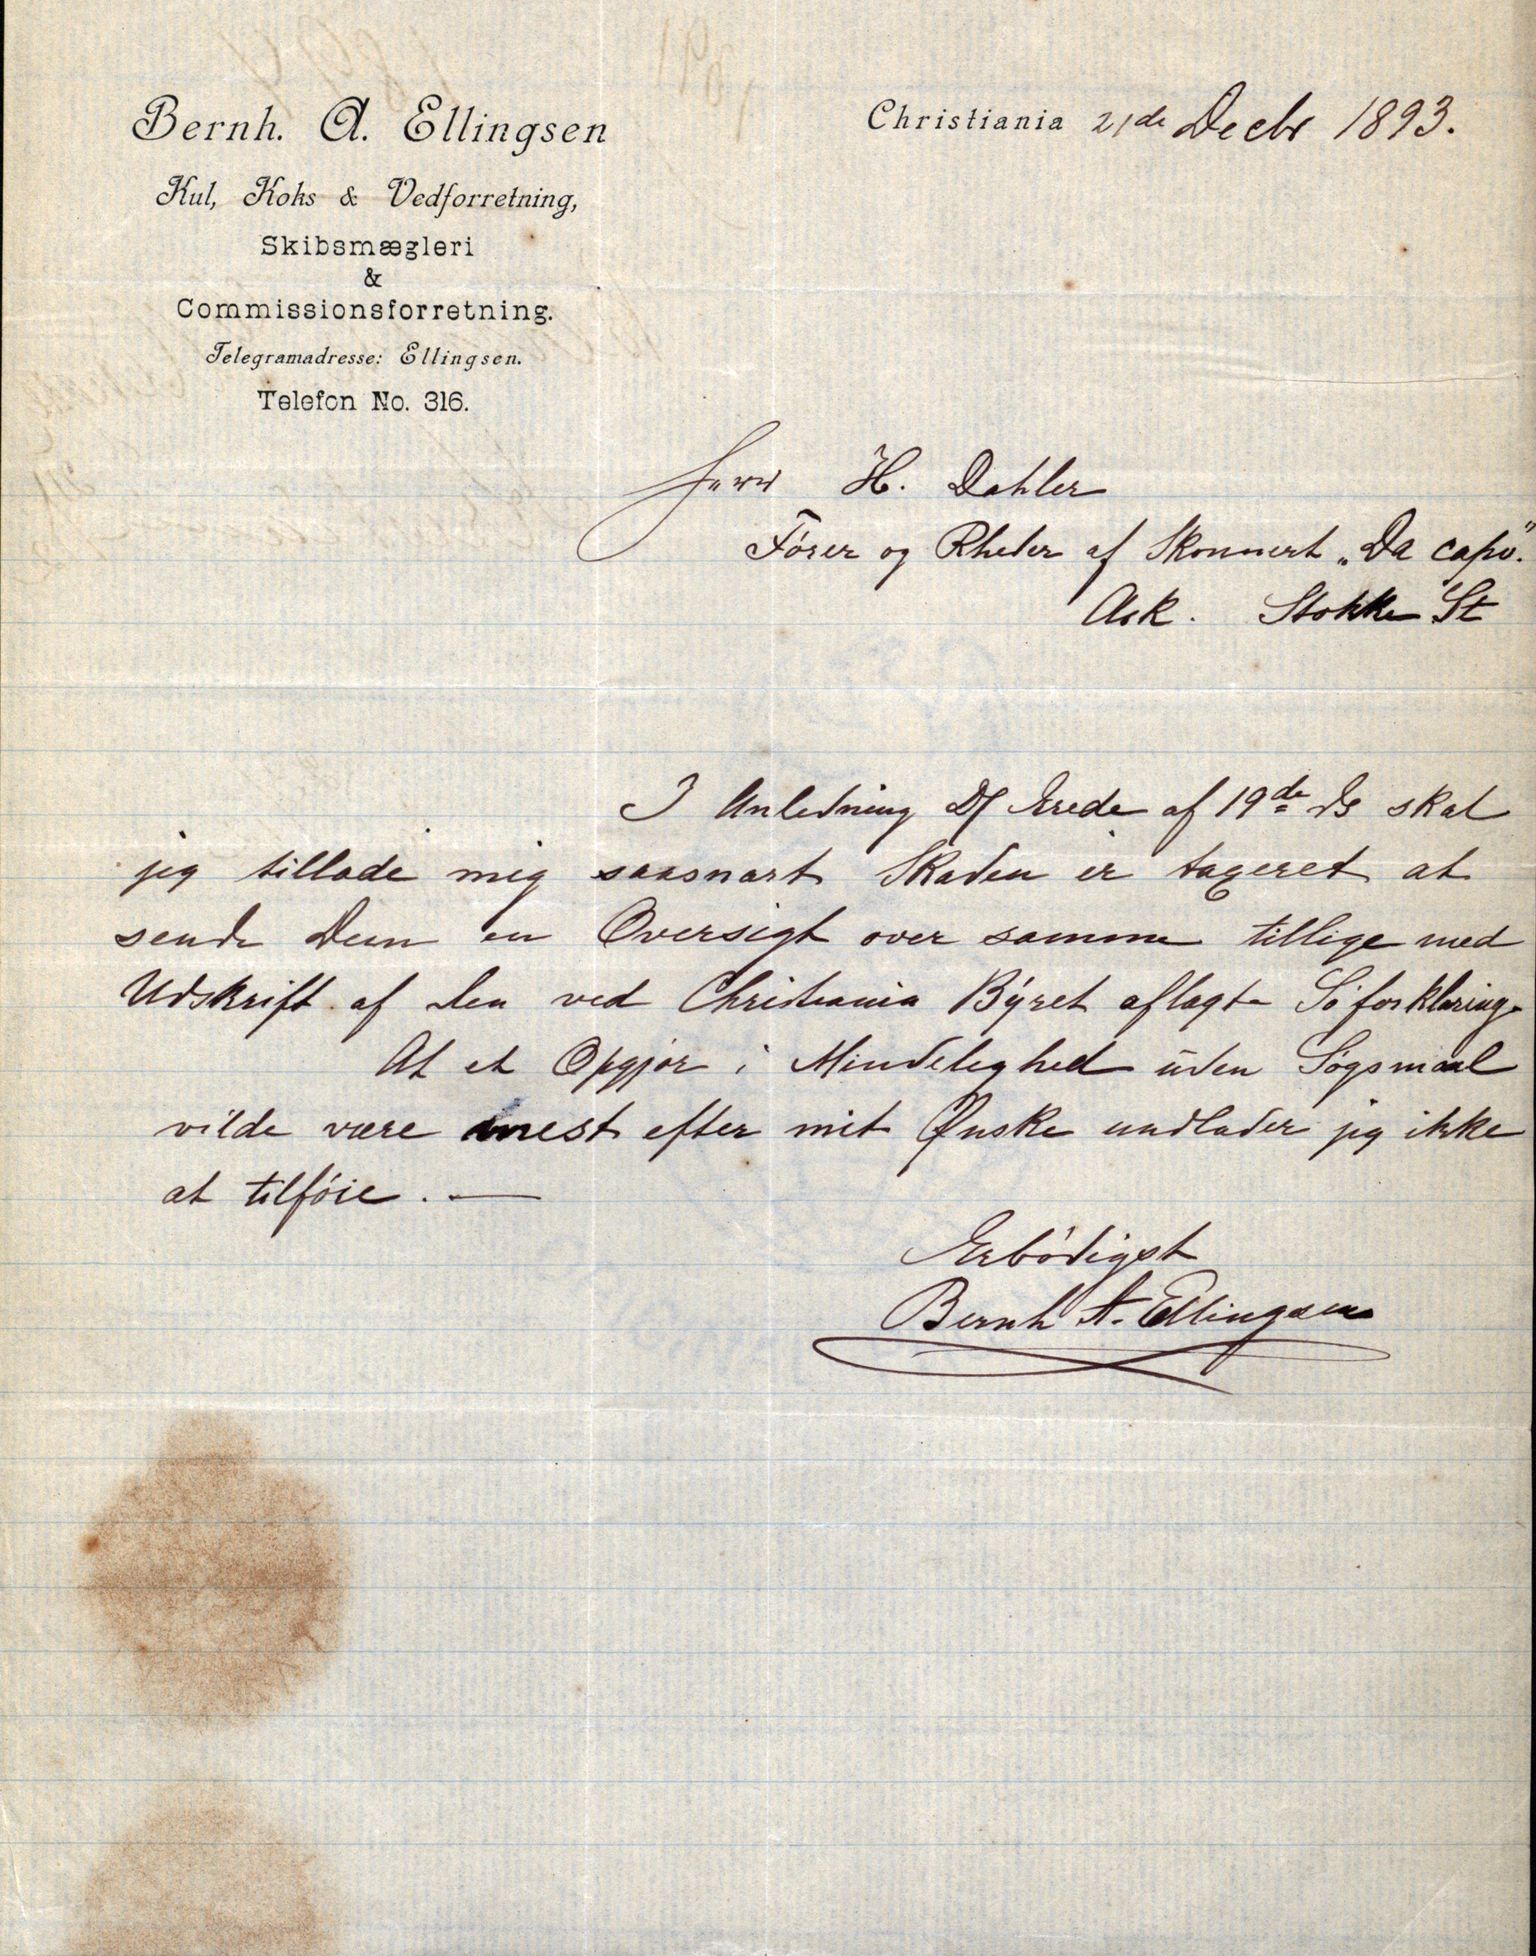 Bernh. A. Ellingsen
Kul, Koks & Vedforretning,
Skibsmægleri
&
Commissionsforretning.
Telegramadresse: Ellingsen.
Telefon No. 316.
Christiania 21de Decbr 1893.
Herr H. Dahler
Fører og Rheder af Skonnert „Da capo”.
Ask. Stokke St
I Anledning D/ Ærede af 19de ds skal
jeg tillade mig saasnart Skaden er taxeret at
sende Dem en Oversigt over samme tillige med
Udskrift af den ved Christiania Byret aflagte Søforklaring.
At et Opgjør i Mindelighed uden Søgsmaal
vilde være mest efter mit Ønske undlader jeg ikke
at tilføie. —
Ærbødigst
Bernh A. Ellingsen